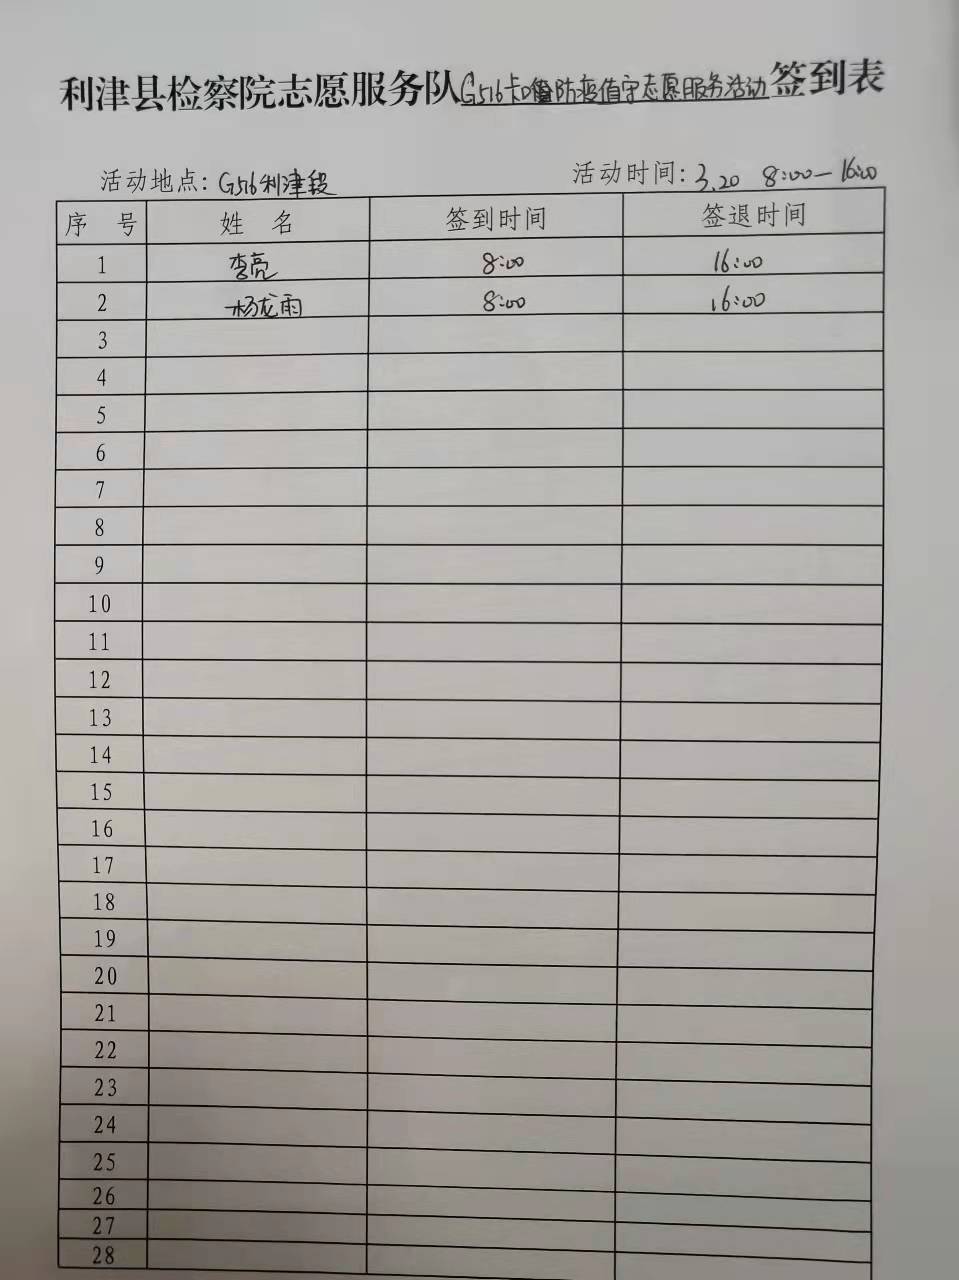 利津县检察院志愿服务队G516卡口防疫值守志愿服务活动签到表
活动地点:G516利津段 活动时间:3.20 8:00-16:00
序 号 姓 名 签到时间 签退时间
1 李亮 8:00 16:00
2 杨龙雨 8:00 16:00
3
4
5
6
7
8
9
10
11
12
13
14
15
16
17
18
19
20
21
22
23
24
25
26
27
28